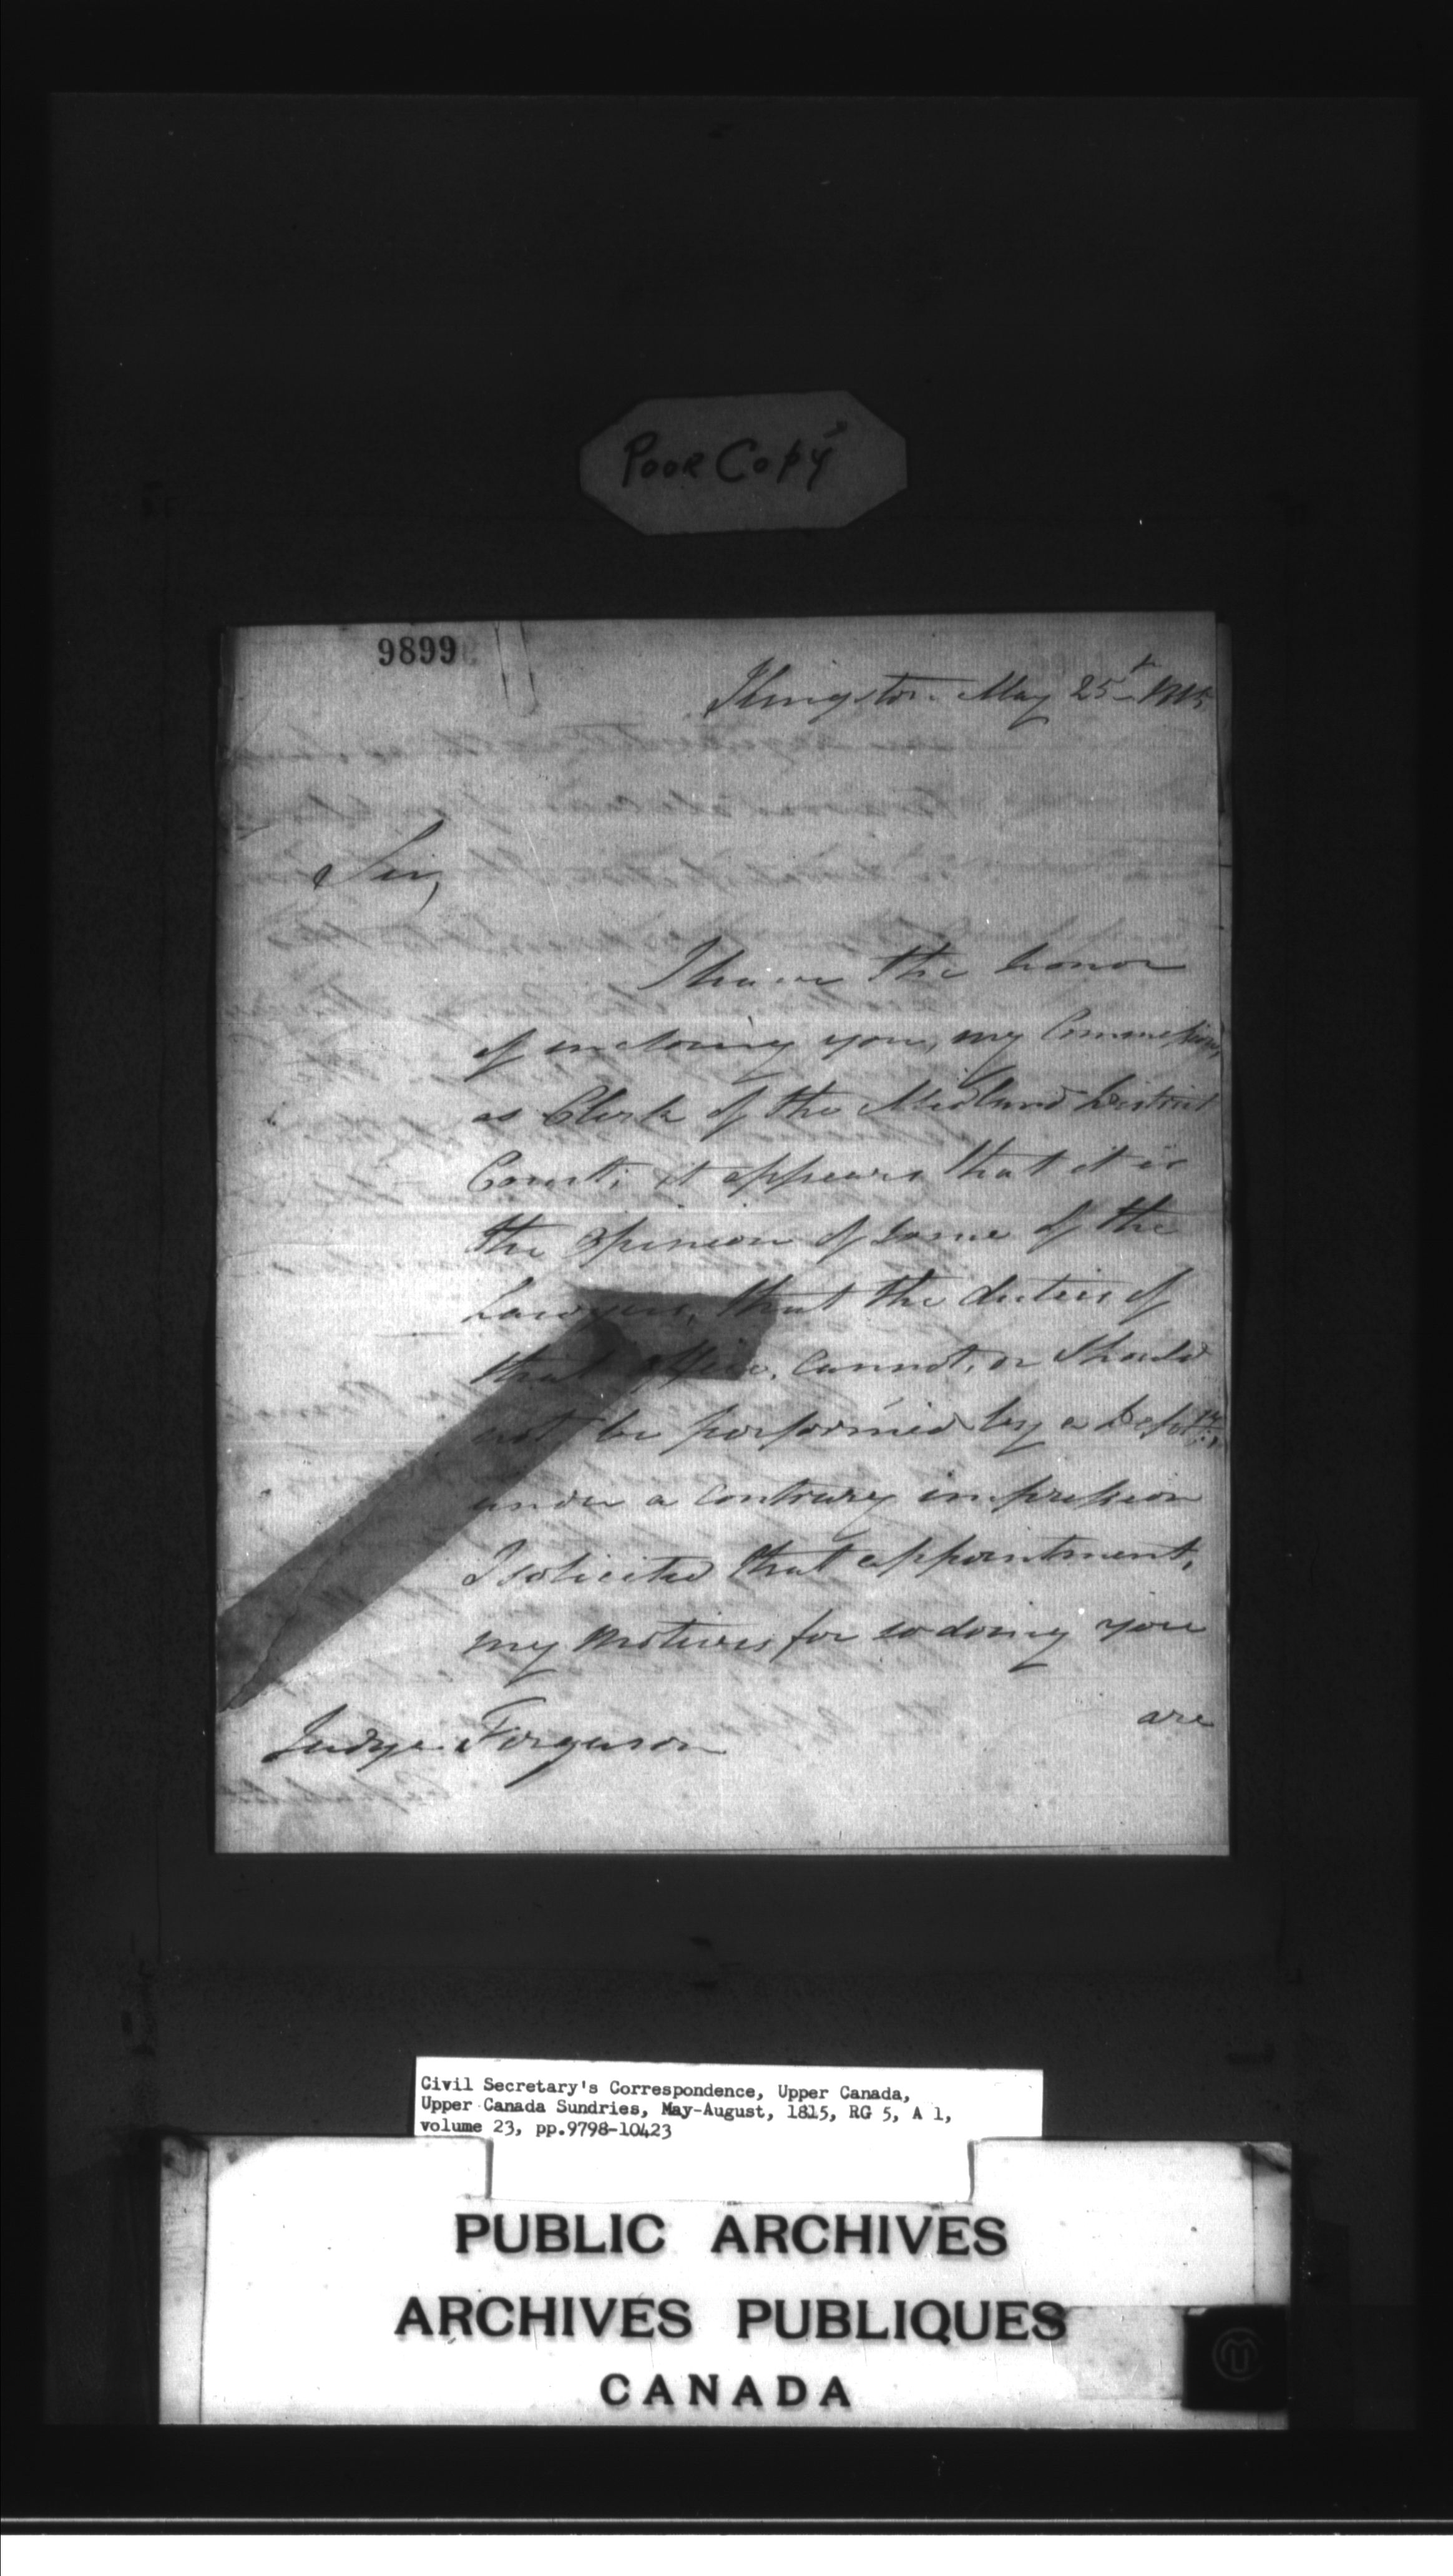 Poor Copy
9899
Kingston May 25th 1815
Sir,
I have the honor
of inclosing you, my Commission
as Clerk of the Midland District
Court; it appears that it is
the opinion of some of the
Lawyers, that the duties of
that office, cannot, or should
not be performed by a Deputy;
under a contrary impression
I solicited that appointment,
my motives for so doing you
are
Judge Ferguson
Civil Secretary's Correspondence, Upper Canada,
Upper Canada Sundries, May-August, 1815, RG 5, A 1,
volume 23, pp.9798-10423
PUBLIC ARCHIVES
ARCHIVES PUBLIQUES
CANADA